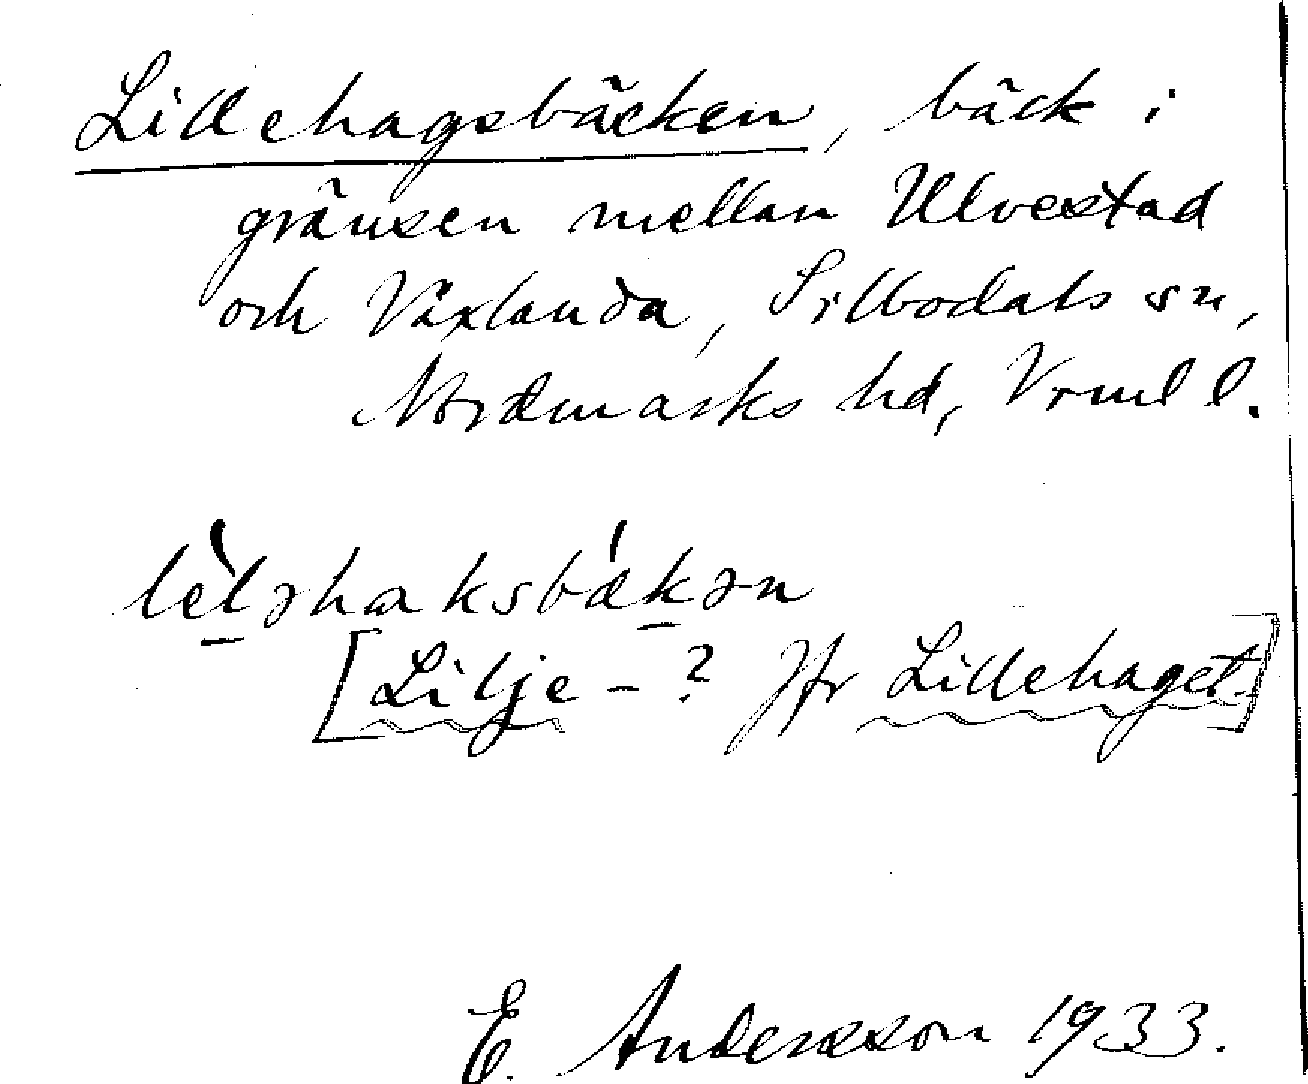 Lillehagsbäcken, bäck i
gränsen mellan Ulvestad
och Växlanda, Silbodals sn,
Nordmarks hd, Vrml l.
lèləhaksbǽkən
[Lilje- ? Jfr Lillehaget]
E. Andersson 1933.